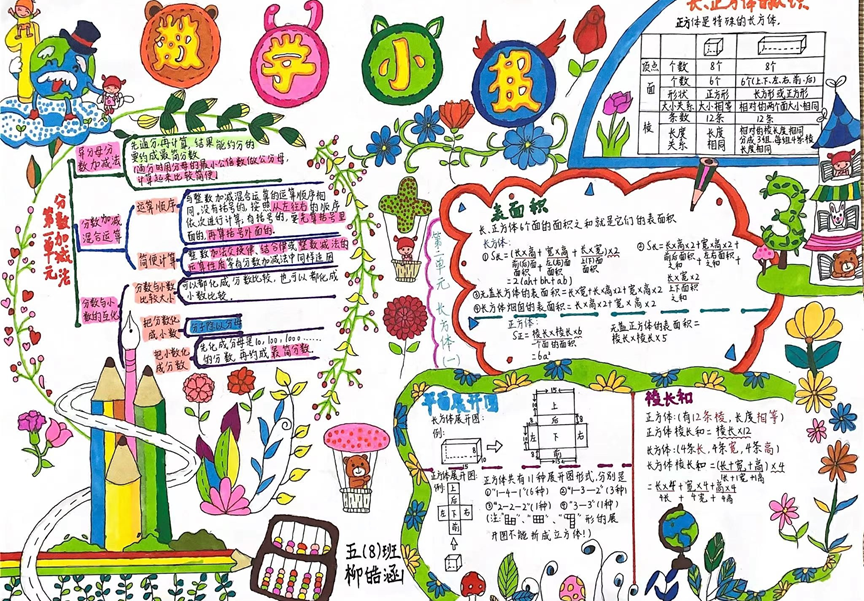 数学小报
第一单元
分数加减法
异分母分
数加减法
先通分,再计算,结果能约分的
要约成最简分数
通分时用分母的最小公倍数做公分母,
计算起来比较简便。
分数加减
混合运算
运算顺序
与整数加减混合运算的运算顺序相
同。没有括号的,按照从左往右的顺序
依次进行计算,有括号的,要先算括号里
面的,再算括号外面的。
简便计算
整数加法交换律、结合律或整数减法的
运算性质等在分数加减法中同样适用
分数与小
数的互化
分数与小数
比较大小
可以都化成分数比较,也可以都化成
小数比较。
把分数化
成小数
分子除以分母
把小数化
成分数
先化成分母是10,100,1000……
的分数,再约成最简分数。
五(8)班
柳皓涵
长、正方体的认识
正方体是特殊的长方体。
顶点 个数 8个 8个
面 个数 6个 6个(上、下、左、右、前、后)
形状 正方形 长方形或正方形
大小关系 大小相等 相对的两个面大小相同
棱 条数 12条 12条
长度关系 长度相同 相对的棱长度相同
分成3组,每组4条棱
长度相同
第二单元 长方体(一)
表面积
长、正方体6个面的面积之和就是它们的表面积
长方体:
①S长=(长×高+宽×高+长×宽)×2
前(后)面面积 左(右)面面积 上(下)面面积
=2(ah+bh+ab)
②S长=长×高×2+宽×高×2+
前后面积之和 + 左右面积之和 +
长×宽×2
上下面积之和
③无盖长方体的表面积=长×宽+长×高×2+宽×高×2
④长方体烟囱的表面积=长×高×2+宽×高×2
正方体:
S正=棱长×棱长×6
一个面的面积
=6a²
无盖正方体的表面积=
棱长×棱长×5
平面展开图
长方体展开图:
例:
上
后
左 下 右
前
正方体展开图:
例:
上
后
左 下 右
前
正方体共有11种展开图形式,分别是
①"1-4-1"(6种) ②"1-3-2"(3种)
③"2-2-2"(1种) ④"3-3"(1种)
形的展
开图不能折成立方体!)
棱长和
正方体:(有12条棱,长度相等)
正方体棱长和=棱长×12
长方体:(4条长,4条宽,4条高)
长方体棱长和=(长+宽+高)×4
1长+1宽+1高
=长×4+宽×4+高×4
4长+4宽+4高